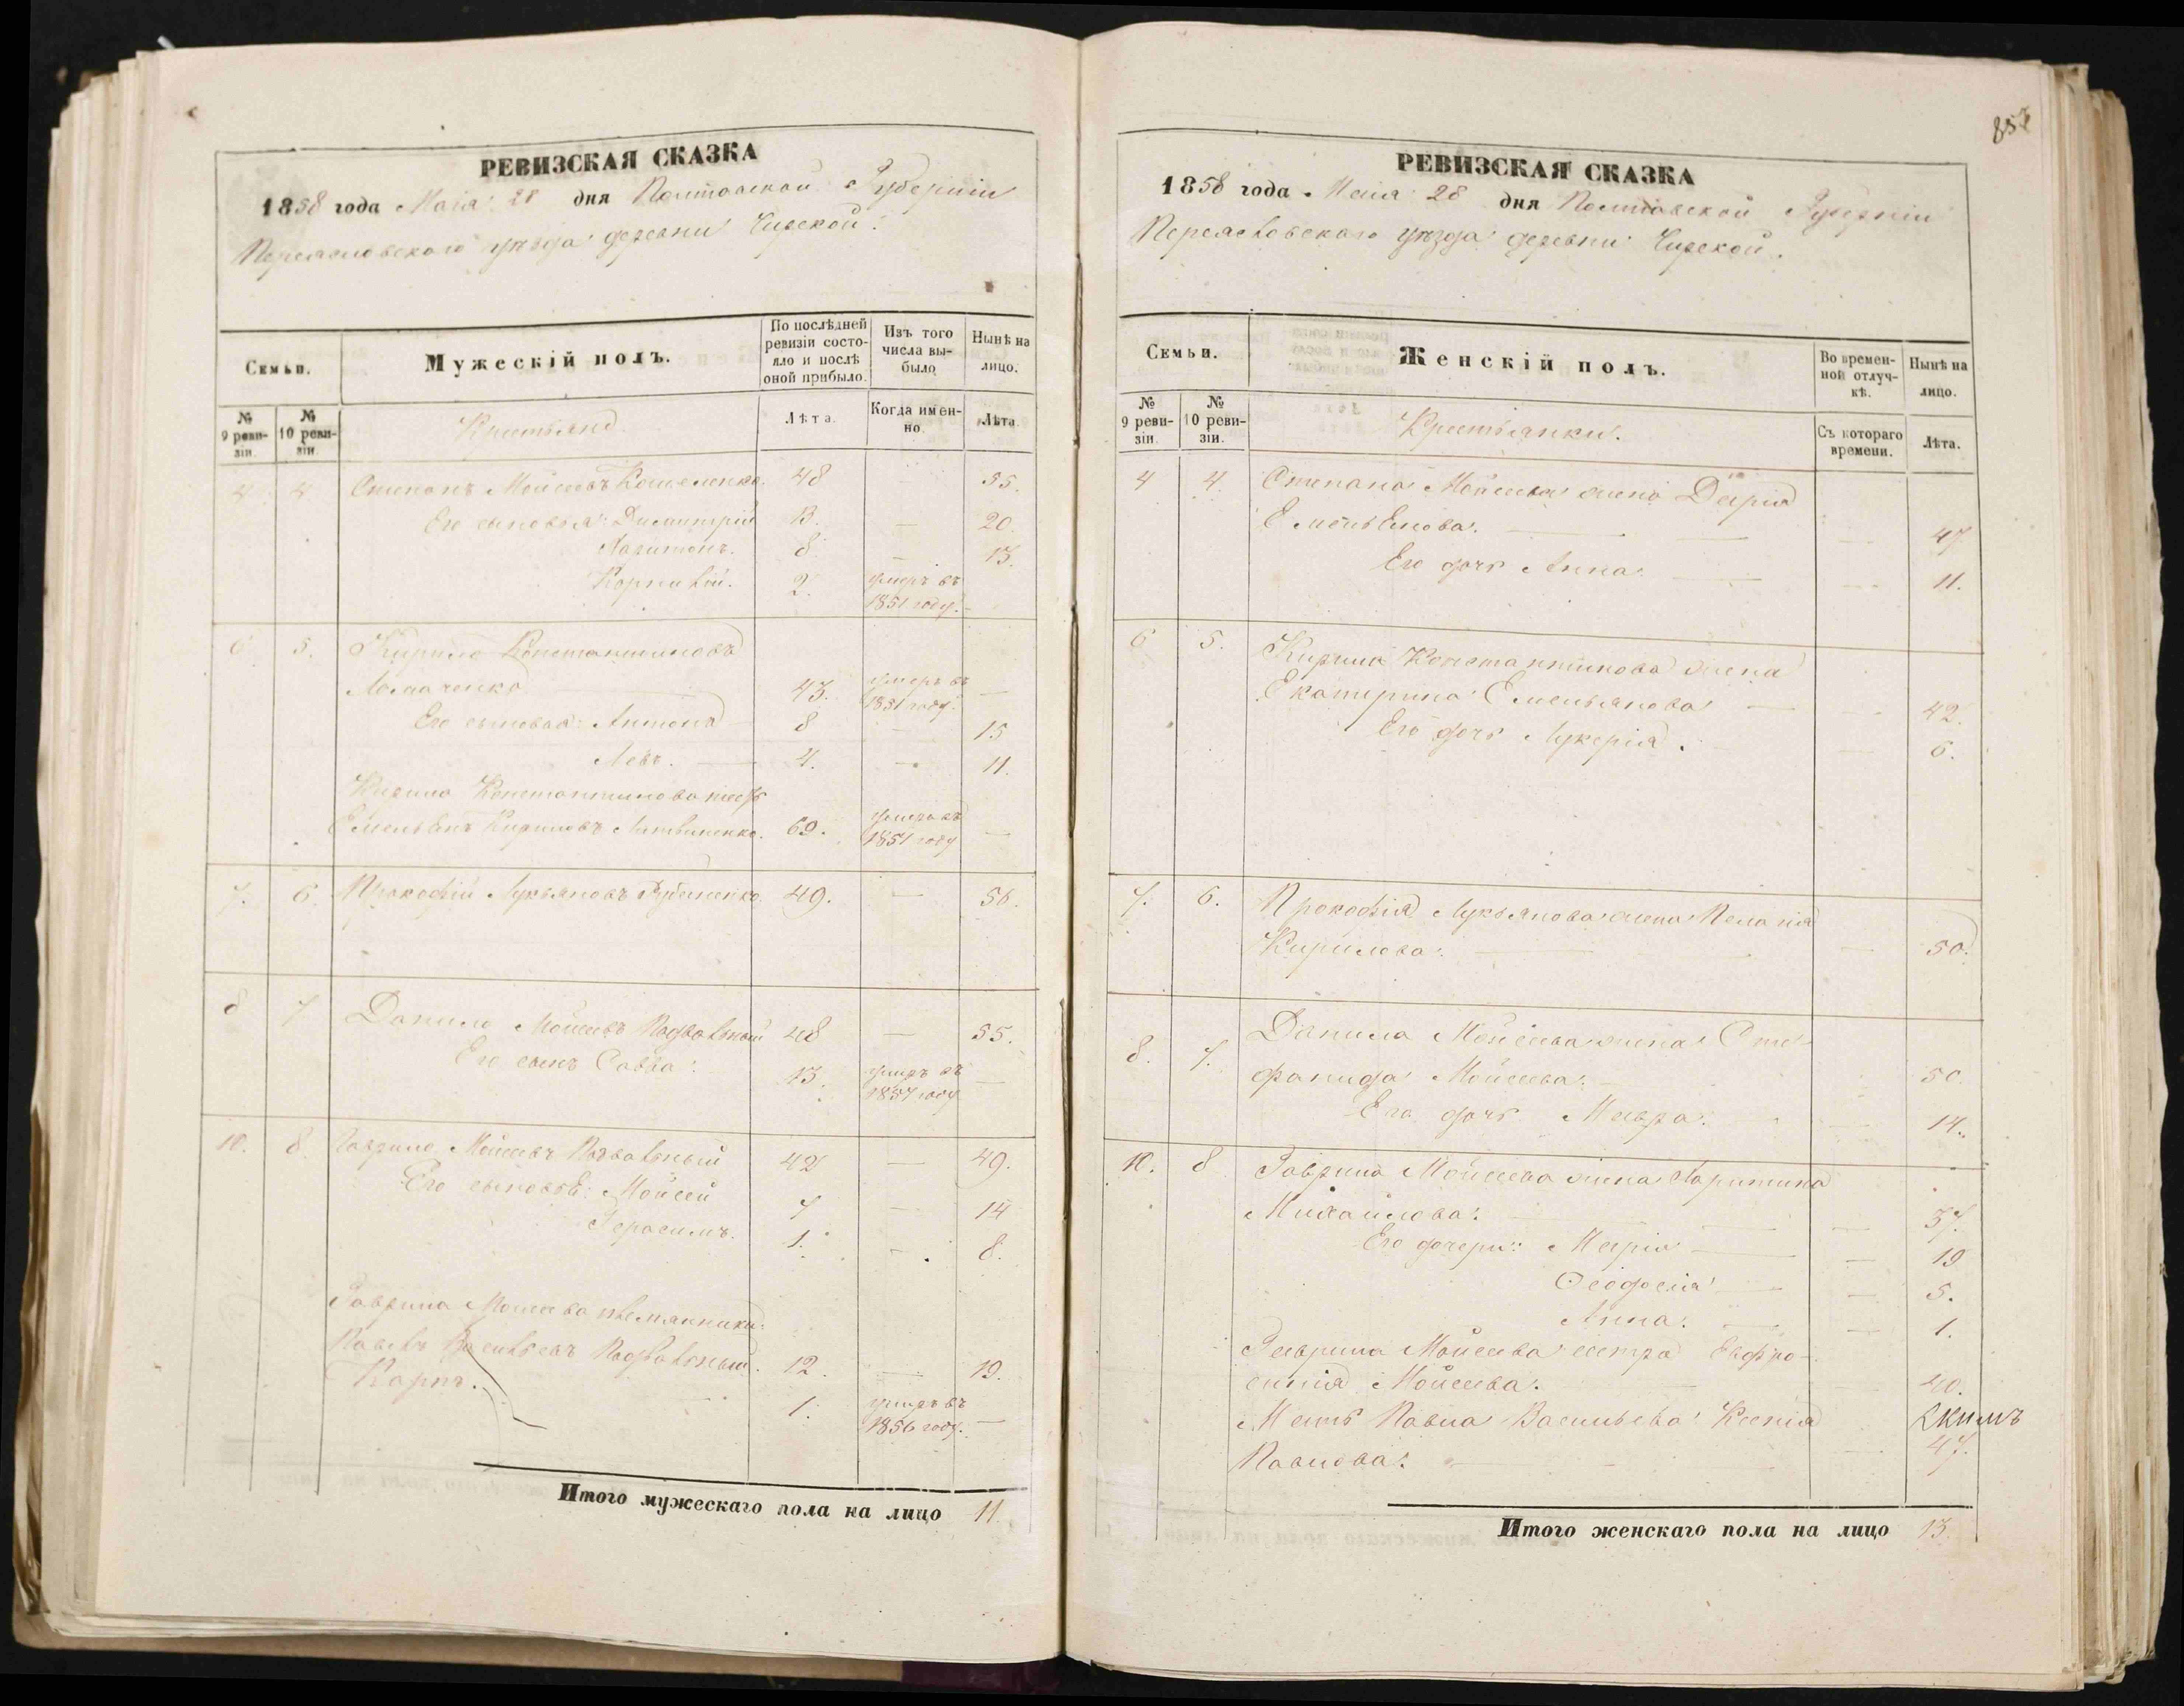 РЕВИЗСКАЯ СКАЗКА
1858 года Маія 28 дня Полтавской Губерніи
Переясловскаго уѣзда деревни Чирской.
Семьи.
Мужескій полъ.
По послѣдней ревизіи состояло и послѣ оной прибыло.
Изъ того числа выбыло
Нынѣ на лицо.
№ 9 ревизіи.
№ 10 ревизіи
Крестьяне
Лѣта.
Когда именно.
Лѣта
4 4 Степанъ Мойсеевъ Кошеленко. 48 — 55.
Его сыновья: Димитрій 13. — 20.
Харитонъ. 8. — 15.
Корнилій. 2. умеръ въ
1851 году. -
6 5. Кирило Константиновъ
Ломаченко 43. умеръ въ 1851 году. —
Его сыновья: Антонъ — 8 — 15
Левъ. — 4. — 11.
Кирила Константинова тесть
Емельянъ Кириловъ Литвиненко. 69. умеръ въ 1851 году —
7. 6. Прокофій Лукьяновъ 49. — 56.
8 7 Данило Мойсеевъ Подвальный 48 — 55.
Его сынъ Савва: 13. умеръ въ 1857 году —
10. 8. Гаврило Мойсеевъ Подвальный 42 — 49.
Его сыновья: Мойсей 7 — 14
Герасимъ. 1. - 8.
Гаврила Мойсеева племянники:
Павелъ Васильевъ Подвальный. 12. — 19.
Карпъ. 1. умеръ въ 1856 году. —
Итого мужескаго пола на лицо 11.
РЕВИЗСКАЯ СКАЗКА
1858 года Маія 28 дня Полтавской Губерніи
Переясловскаго уѣзда деревни Чирской.
Семьи.
Женскій полъ.
Во временной отлучкѣ.
Нынѣ на лицо.
№ 9 ревизіи.
№ 10 ревизіи.
Крестьянки.
Съ котораго времени.
Лѣта.
4 4. Степана Мойсеева жена Дарія
Емельянова. — — 47
Его дочь Анна — — 11.
6 5. Кирила Константинова жена
Екатерина Емельянова — — 42.
Его дочь Лукерія. — 6.
7. 6. Прокофія Лукьянова жена Пелагія
Кирилова. — — 50.
8. 7. Данила Мойсеева жена Сте-
фанида Мойсеева. 50.
Его дочь Мавра. — — 14.
10. 8 Гаврила Мойсеева жена Харитина
Михайлова. — — 37.
Его дочери: Марія — — 19
Феодосія — — 5.
Анна. — — 1.
Гаврила Мойсеева сестра Евфро-
синія Мойсеева. — 40.
Мать Павла Васильева Ксенія
Павлова. — 47.
Итого женскаго пола на лицо 13.